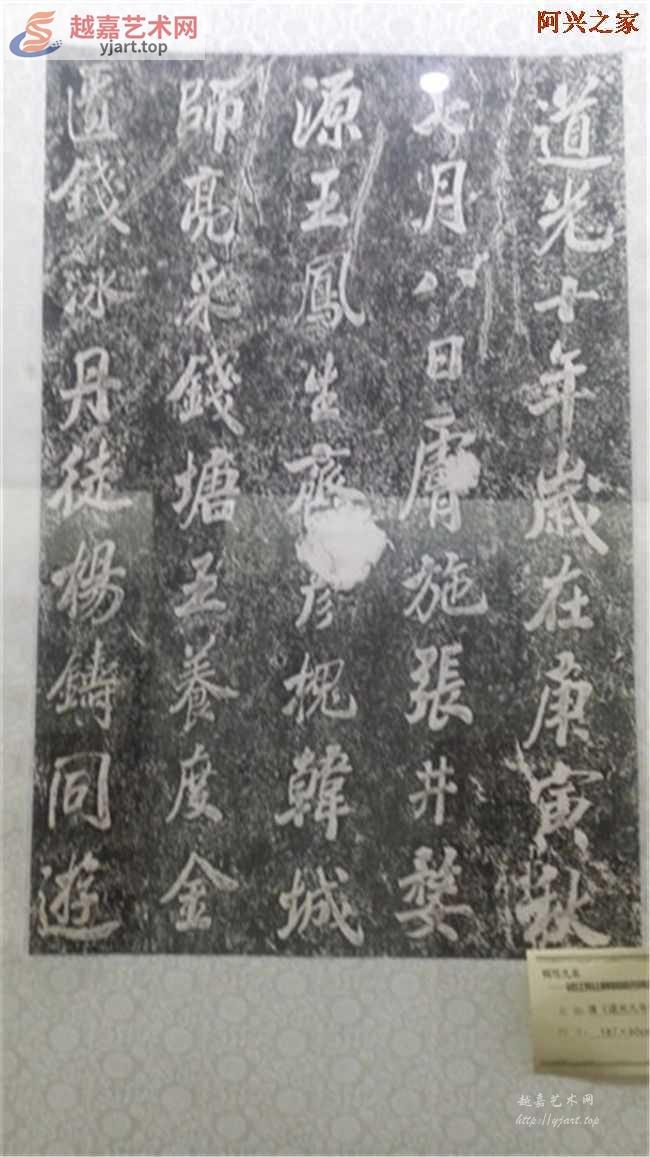 越嘉艺术网
yjart.top
阿兴之家
道光十年歲在庚寅秋
七月八日膚施張井婺
源王鳳生 彦槐韓城
師亮采錢塘王養度金
匱錢泳丹徒楊鑄同遊
越嘉艺术网
http://yjart.top